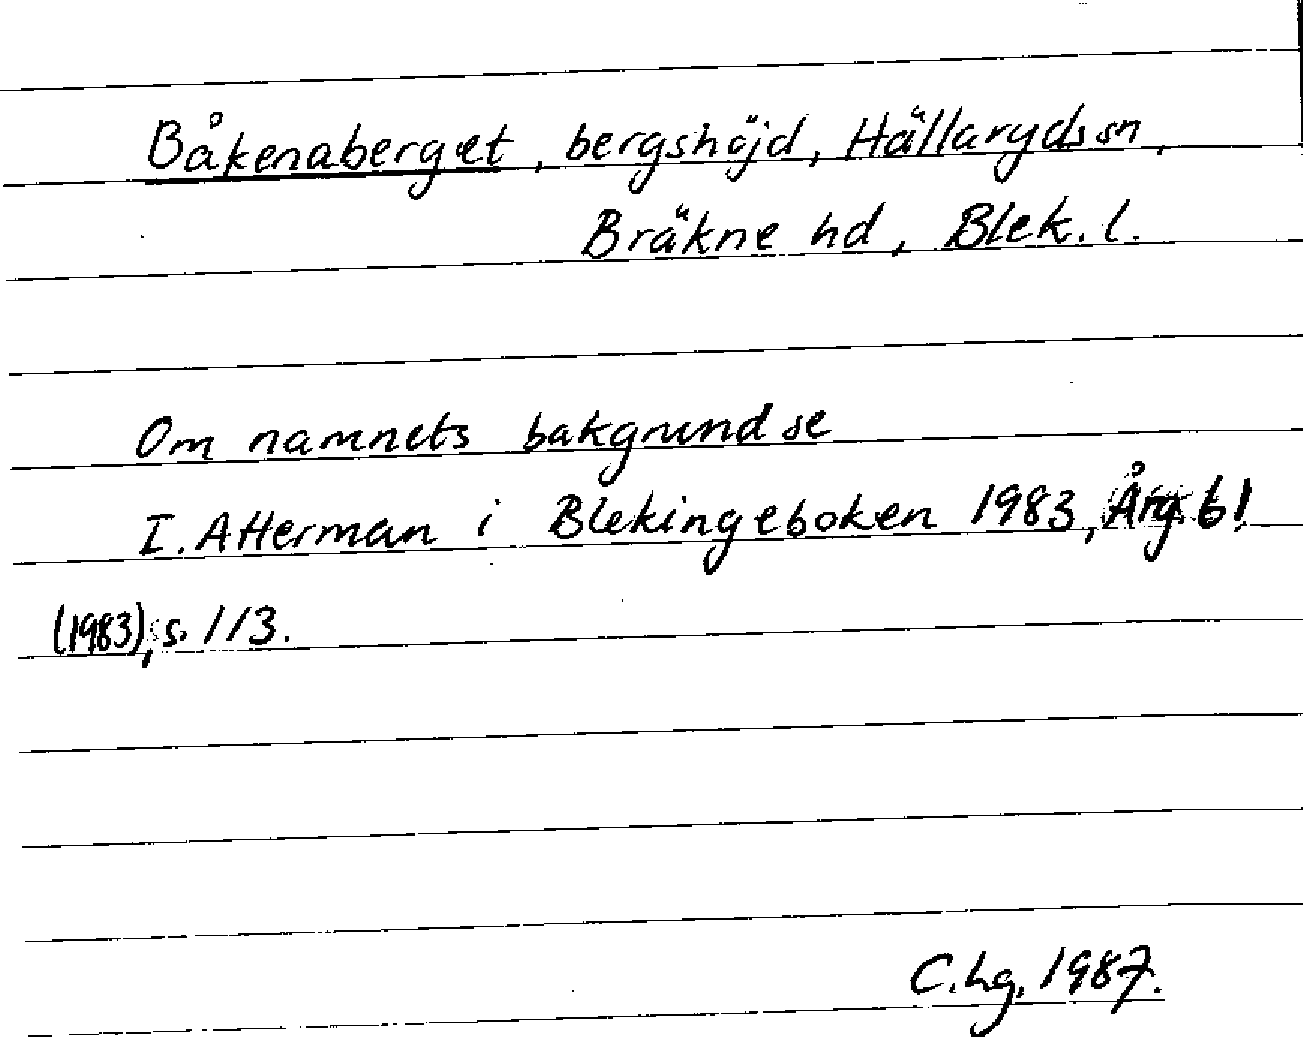 Båkenaberget, bergshöjd, Hällaryds sn,
Bräkne hd, Blek. l.
Om namnets bakgrund se
I. Atterman i Blekingeboken 1983, Årg. 61
(1983), s. 113.
C. Lg. 1987.